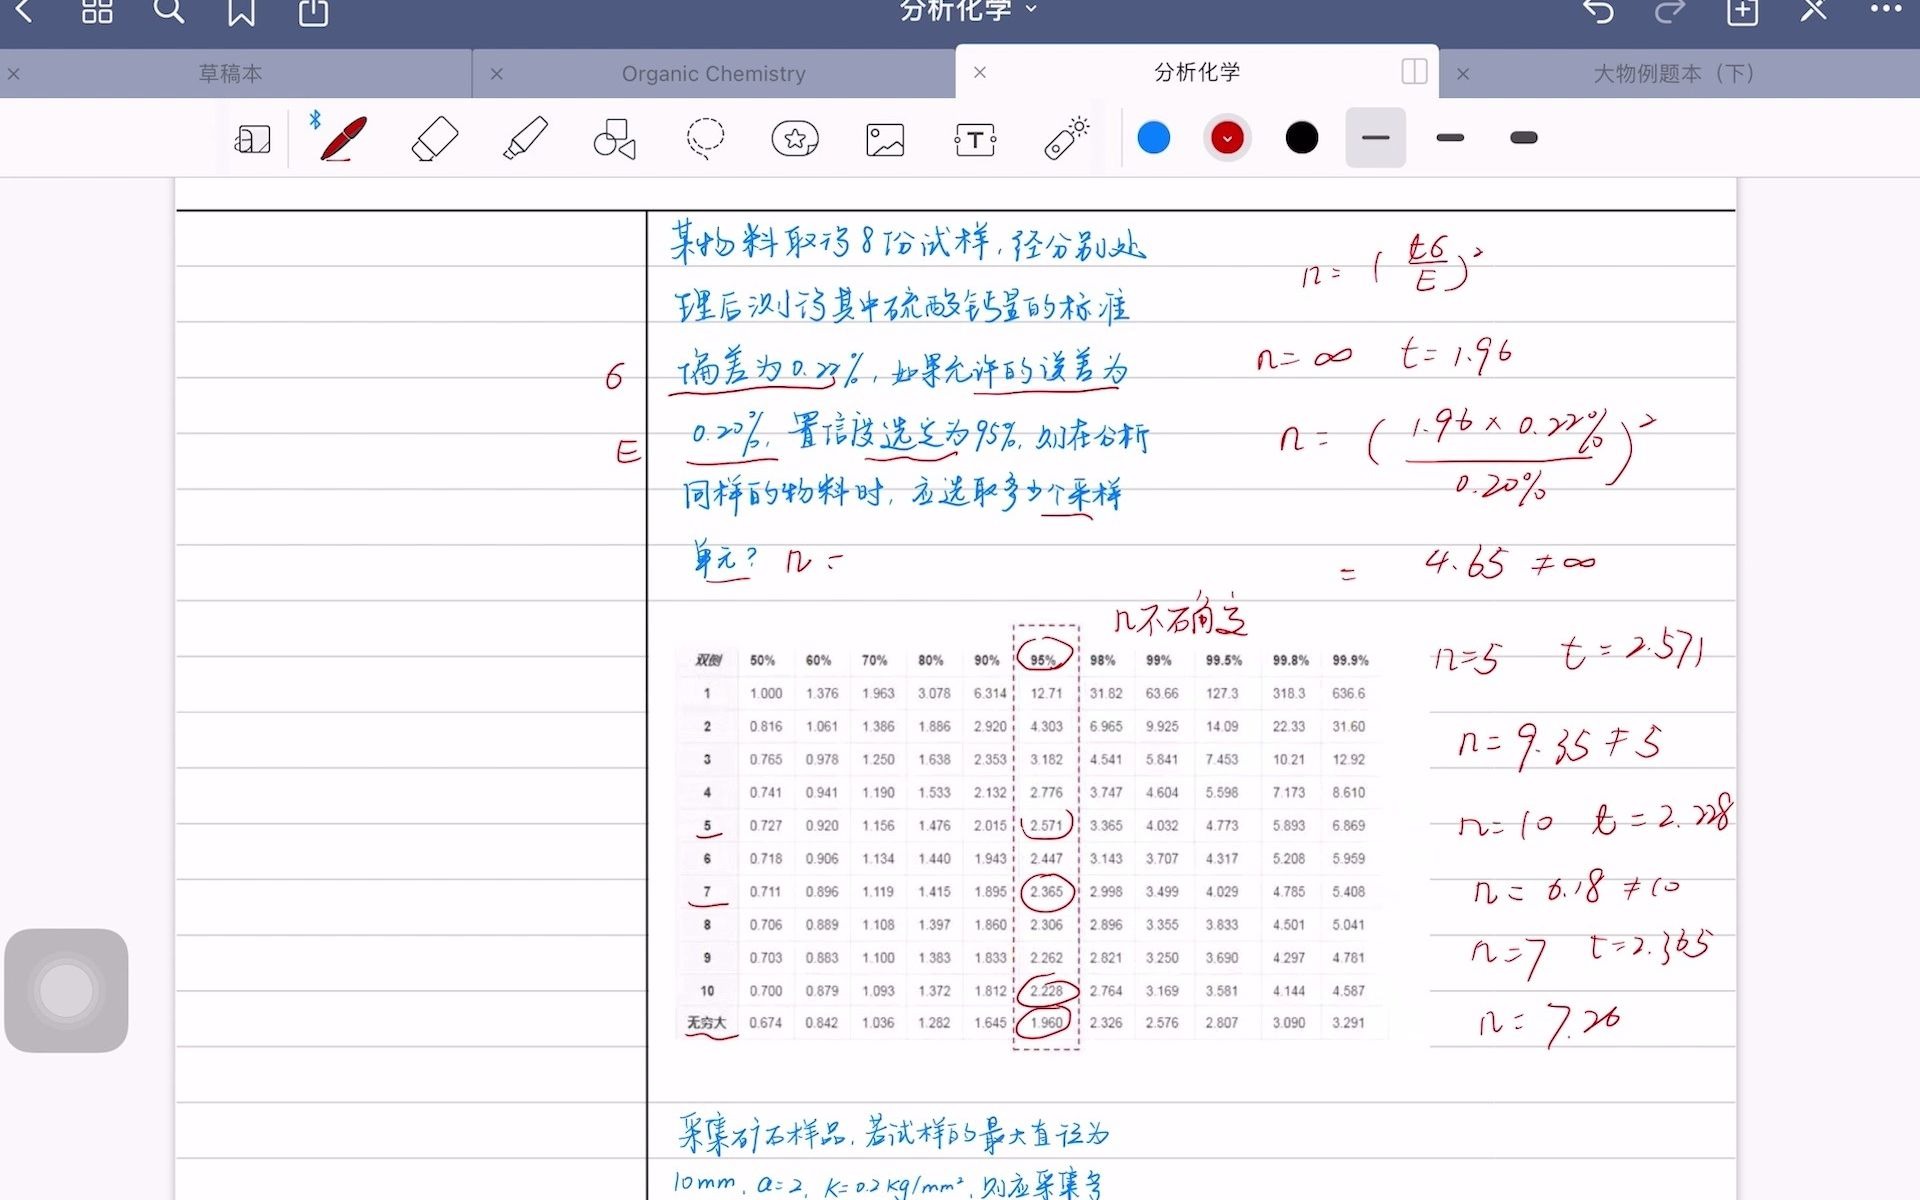 分析化学
草稿本
Organic Chemistry
分析化学
大物例题本（下）
某物料取得8份试样,经分别处
理后测得其中硫酸钙量的标准
偏差为0.22%,如果允许的误差为
0.20%,置信度选定为95%,则在分析
同样的物料时,应选取多少个采样
单元? n =
σ
E
n = (tσ/E)²
n = ∞ t = 1.96
n = (1.96 × 0.22% / 0.20%)²
= 4.65 ≠ ∞
n不确定
双侧 50% 60% 70% 80% 90% 95% 98% 99% 99.5% 99.8% 99.9%
1 1.000 1.376 1.963 3.078 6.314 12.71 31.82 63.66 127.3 318.3 636.6
2 0.816 1.061 1.386 1.886 2.920 4.303 6.965 9.925 14.09 22.33 31.60
3 0.765 0.978 1.250 1.638 2.353 3.182 4.541 5.841 7.453 10.21 12.92
4 0.741 0.941 1.190 1.533 2.132 2.776 3.747 4.604 5.598 7.173 8.610
5 0.727 0.920 1.156 1.476 2.015 2.571 3.365 4.032 4.773 5.893 6.869
6 0.718 0.906 1.134 1.440 1.943 2.447 3.143 3.707 4.317 5.208 5.959
7 0.711 0.896 1.119 1.415 1.895 2.365 2.998 3.499 4.029 4.785 5.408
8 0.706 0.889 1.108 1.397 1.860 2.306 2.896 3.355 3.833 4.501 5.041
9 0.703 0.883 1.100 1.383 1.833 2.262 2.821 3.250 3.690 4.297 4.781
10 0.700 0.879 1.093 1.372 1.812 2.228 2.764 3.169 3.581 4.144 4.587
无穷大 0.674 0.842 1.036 1.282 1.645 1.960 2.326 2.576 2.807 3.090 3.291
n=5 t = 2.571
n = 9.35 ≠ 5
n = 10 t = 2.228
n = 6.18 ≠ 10
n = 7 t = 2.365
n = 7.26
采集矿石样品,若试样的最大直径为
10mm, a=2, K=0.2kg/mm², 则应采集多